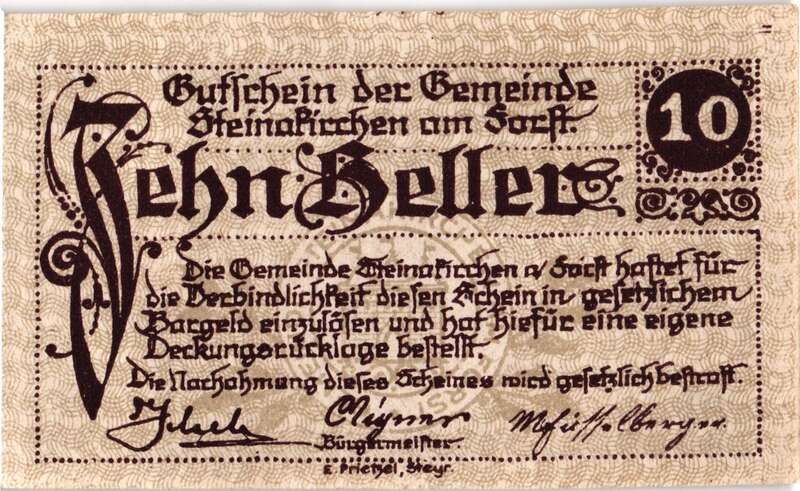 Gutschein der Gemeinde
Steinakirchen am Forst.
10
Zehn Heller
Die Gemeinde Steinakirchen a/ Forst haftet für
die Verbindlichkeit diesen Schein in gesetzlichem
Bargeld einzulösen und hat hiefür eine eigene
Deckungsrücklage bestellt.
Die Nachahmung dieses Scheines wird gesetzlich bestraft.
Aigner
Bürgermeister.
E. Prietzel, Steyr.